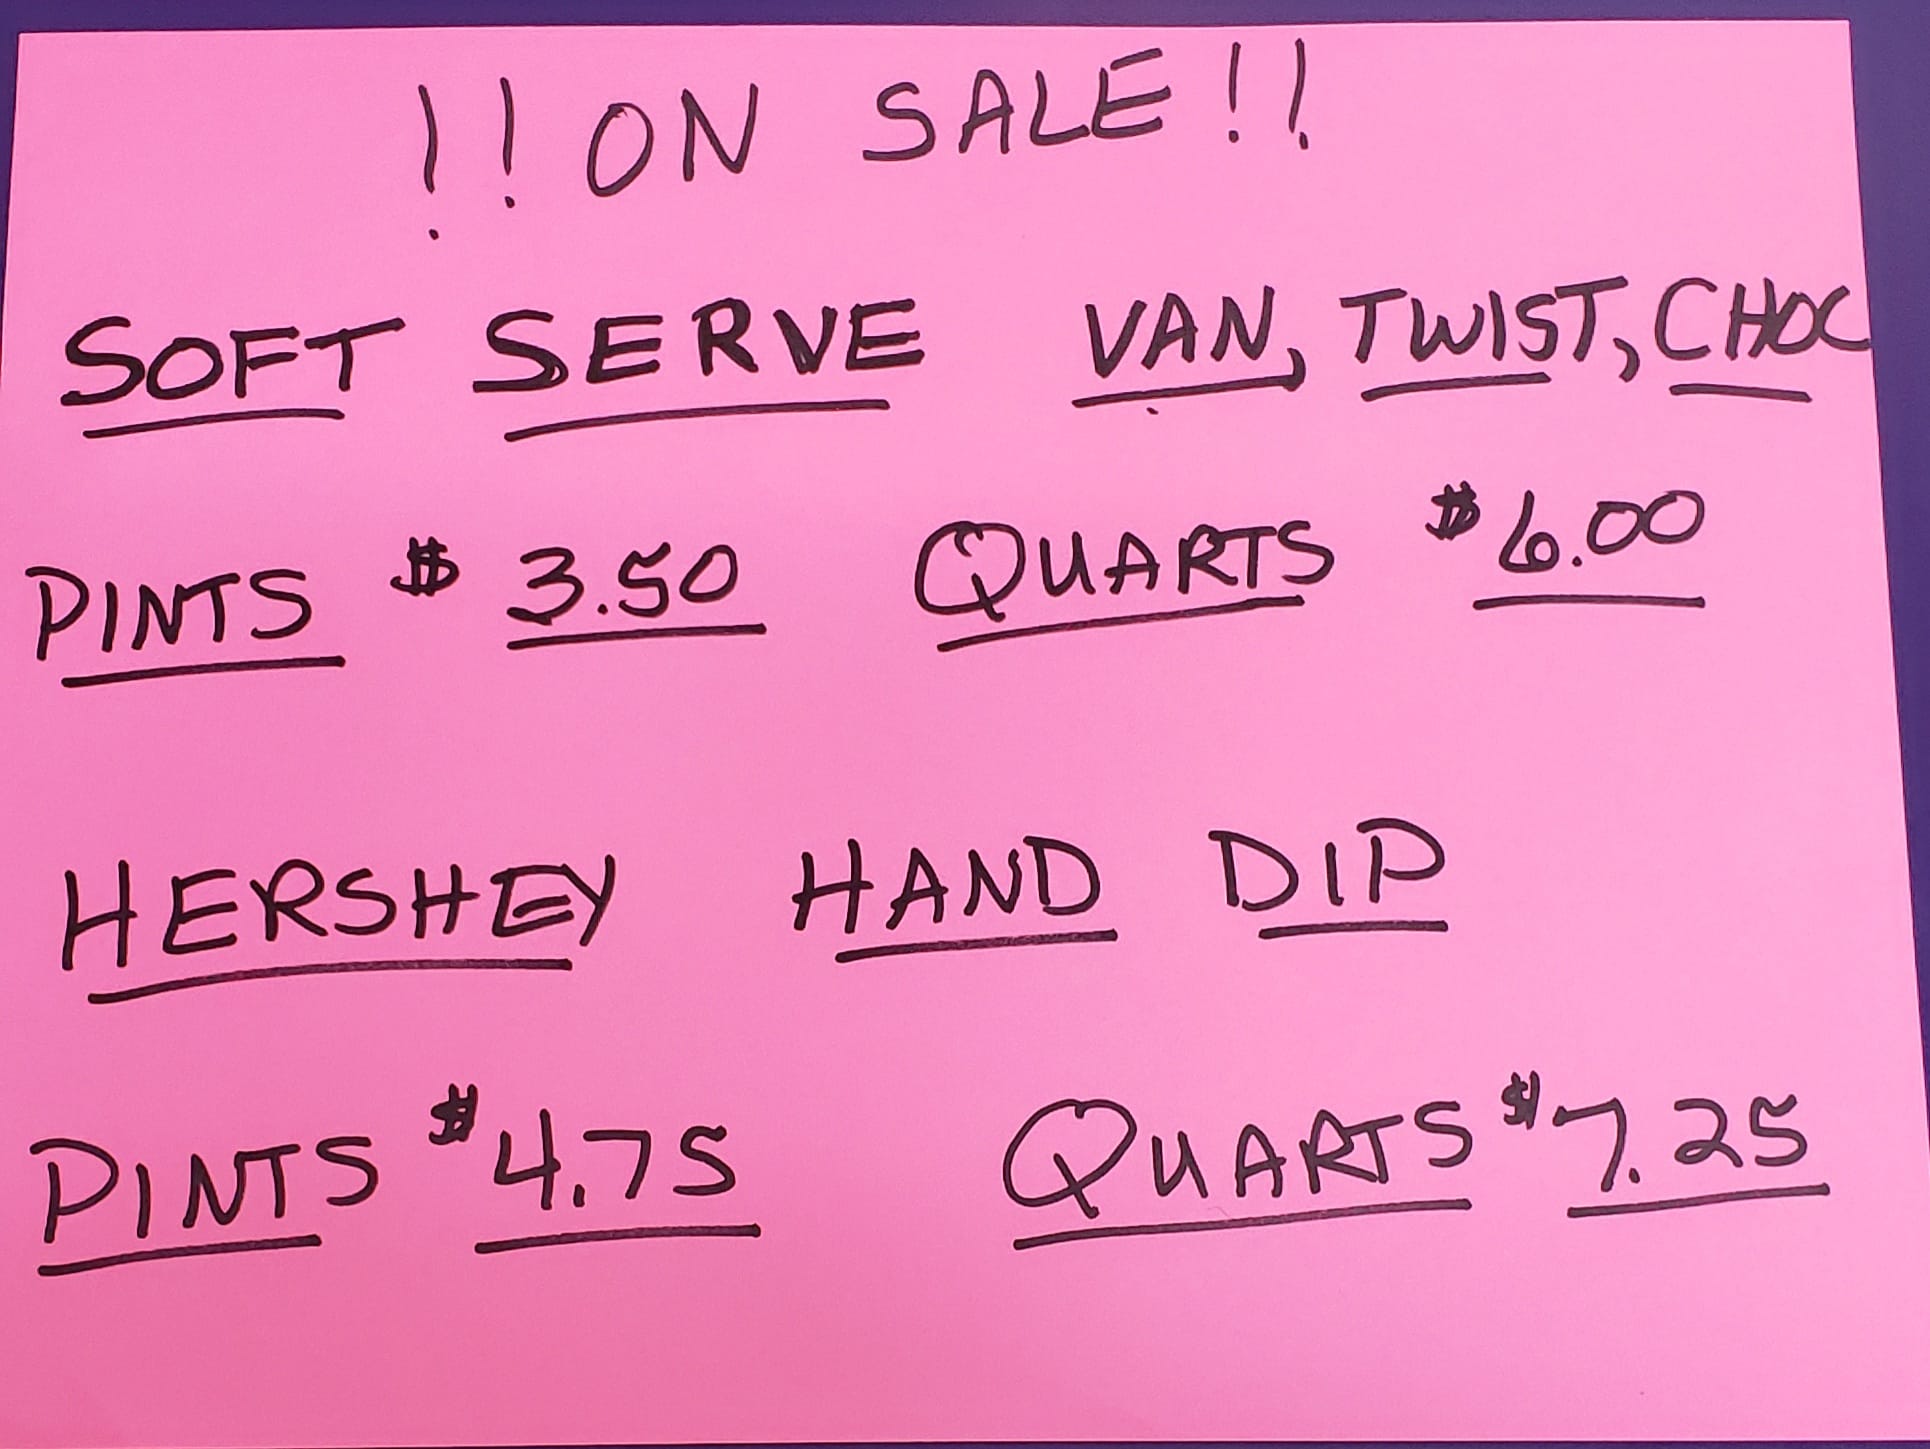 !! ON SALE !!
SOFT SERVE VAN, TWIST, CHOC
PINTS $ 3.50 QUARTS $ 6.00
HERSHEY HAND DIP
PINTS $ 4.75 QUARTS $ 7.25